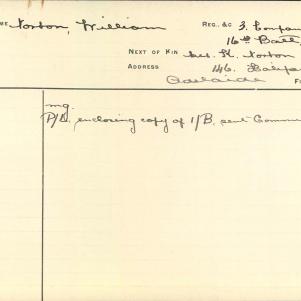 ME Norton, William REG. &C 3. Compan
16th Batt.
NEXT OF KIN Mrs. K. Norton
ADDRESS 146. Halifa
Adelaide F
mg.
P/A. enclosing copy of 1/B. sent Commu